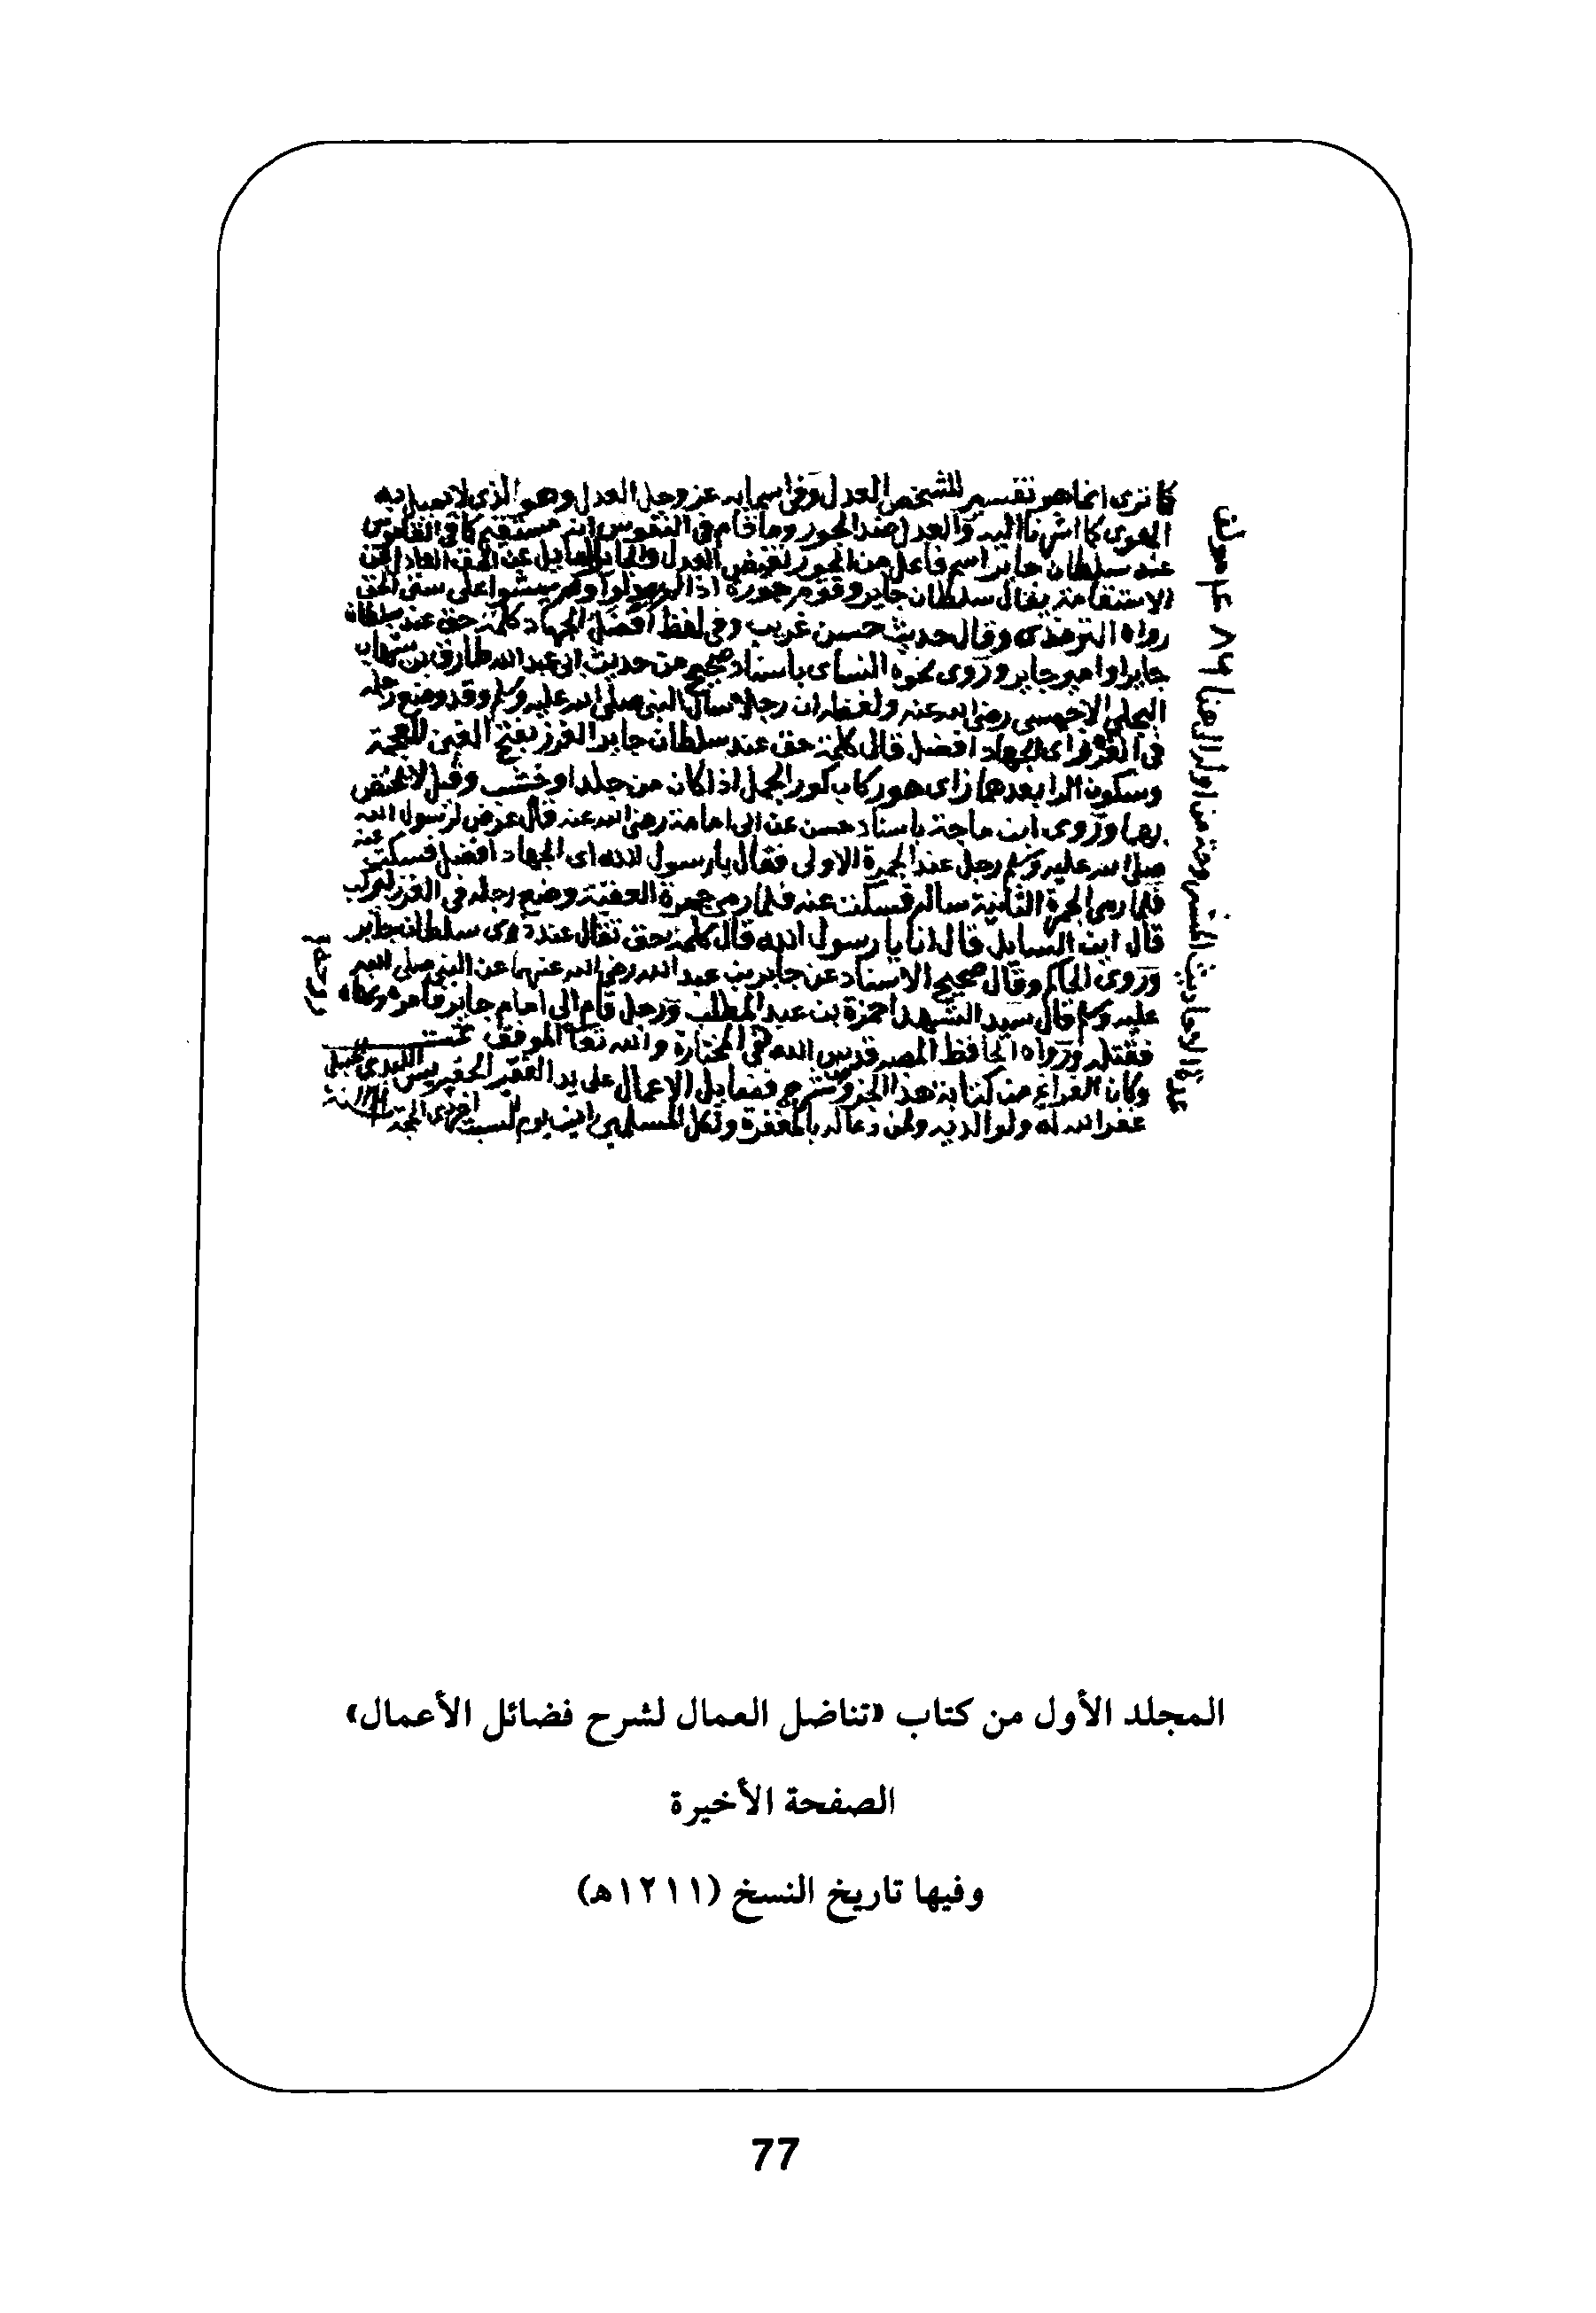 كما ترى انما هو تفسير للشخص العدل وفي اسمايه عز وجل العدل وهو الذي لا تميل به
الهوى كما اشرنا اليه والعدل ضد الجور وما قام في النفوس انه مستقيم كما في القاموس
عند سلطان جاير اسم فاعل من الجور نقيض العدل والجاير المايل عن الحق العادل عن
الاستقامة يقال سلطان جاير وقوم جورة اذا لم يعدلوا ولم يمشوا على سنن الحق
رواه الترمذي وقال حديث حسن غريب وفي لفظ افضل الجهاد كلمة حق عند سلطان
جاير او امير جاير وروى نحوه النساى باسناد صحيح من حديث ابي عبد الله طارق بن شهاب
البجلي الاحمسي رضي الله عنه ولفظه ان رجلا سال النبي صلى الله عليه وسلم وقد وضع رجله
في الغرز اي الجهاد افضل قال كلمة حق عند سلطان جاير الغرز بفتح الغين المعجمة
وسكون الرا بعدها زاى هو ركاب كور الجمل اذا كان من جلد او خشب وقيل لا يختص
بها وروى ابن ماجة باسناد حسن عن ابي امامة رضي الله عنه قال عرض لرسول الله
صلى الله عليه وسلم رجل عند الجمرة الاولى فقال يا رسول الله اي الجهاد افضل فسكت عنه
فلما رمى الجمرة الثانية ساله فسكت عنه فلما رمى جمرة العقبة وضع رجله في الغرز ليركب
قال اين السايل قال انا يا رسول الله قال كلمة حق تقال عند ذوى سلطان جاير
وروى الحاكم وقال صحيح الاسناد عن جابر بن عبد الله رضي الله عنهما عن النبي صلى الله
عليه وسلم قال سيد الشهدا حمزة بن عبد المطلب ورجل قام الى امام جاير فامره ونهاه
فقتله ورواه الحافظ المصـ قدس الله في المختارة والله تعا الموفق
وكان الفراغ من كتابة هذا الجز وشرح فضايل الاعمال على يد الفقير الحقير
غفر الله له ولوالديه ولمن دعا له بالمغفرة ولكل المسلمين امين يوم السبت
عدة الاحاديث من اول الرضا ٨٩
المجلد الأول من كتاب «تناضل العمال لشرح فضائل الأعمال»
الصفحة الأخيرة
وفيها تاريخ النسخ (١٢١١هـ)
77